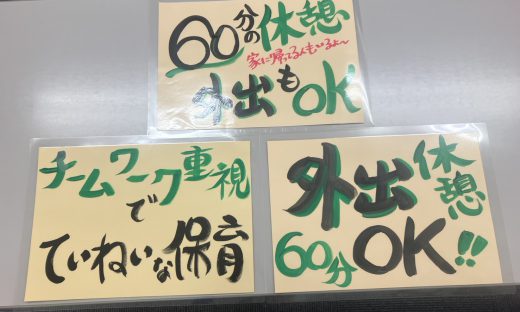 60分の休憩
家に帰ってる人もいるよ～
外出もOK
チームワーク重視
で
ていねいな保育
外出休憩
60分OK!!